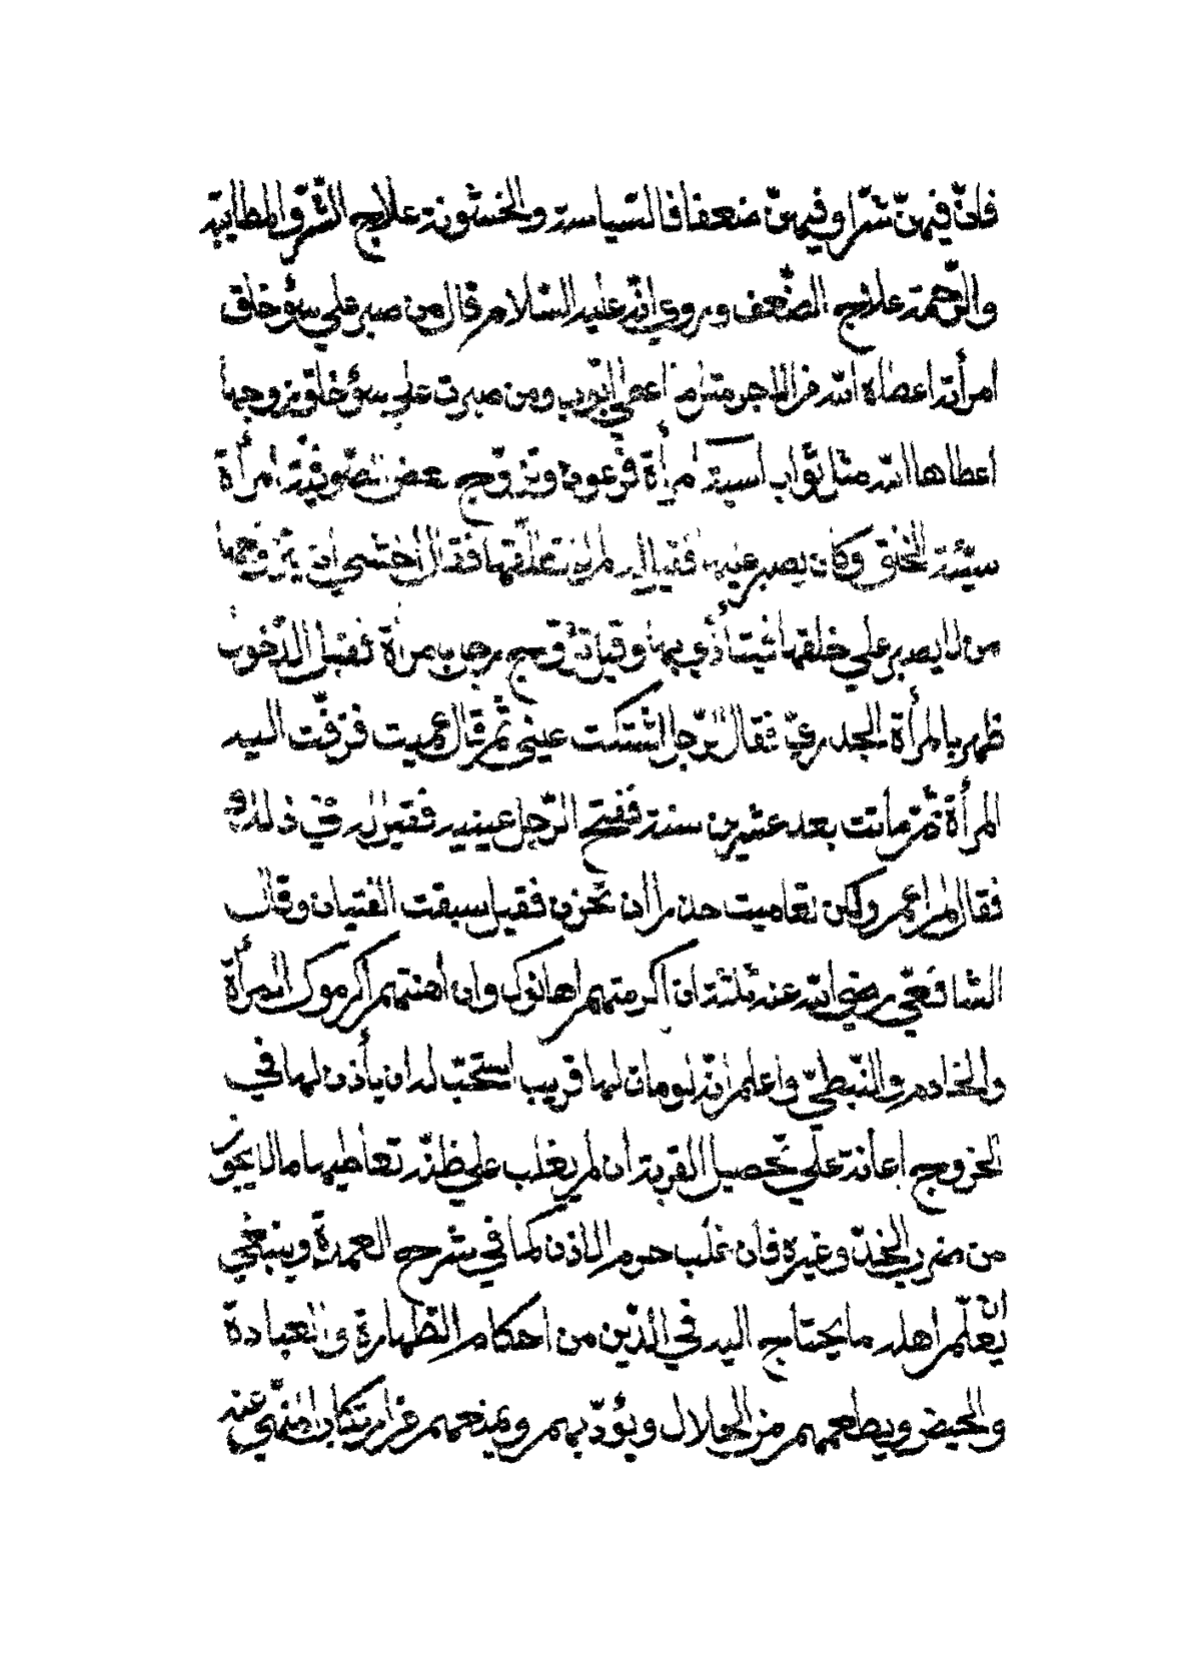 فانّ فيهنّ شرّا وفيهنّ ضعفا فالسّياسة والخشونة علاج الشّرّ والمطايبة
والرّحمة علاج الضّعف وروي انّه عليه السّلام قال من صبر علي سؤ خلق
امرأته اعطاه الله من الاجر مثل ما اعطي ايّوب ومن صبرت علي سؤ خلق زوجها
اعطاها الله مثل ثواب آسية امرأة فرعون وتزوّج بعض الصّوفيّة امرأة
سيّئة الخلق وكان يصبر عليها فقيل له لم لا تطلّقها فقال اخشي ان يتزوّجها
من لا يصبر علي خلقها فيتأذّي بها وقيل تزوّج رجل بامرأة فقبل الدّخول
ظهر بالمرأة الجدريّ فقال الرّجل اشتكت عيني ثمّ قال عميت فزفّت اليه
المرأة ثمّ ماتت بعد عشرين سنة ففتح الرّجل عينيه فقيل له في ذلك
فقال لم اعم ولكن تعاميت حذرا ان تحزن فقيل سبقت الفتيان وقال
الشّافعيّ رضي الله عنه ثلثة ان اكرمتهم اهانوك وان اهنتهم اكرموك المرأة
والخادم والنّبطيّ واعلم انّه لو مات لها قريب استحبّ له ان يأذن لها في
الخروج اعانة علي تحصيل القربة ان لم يغلب علي ظنّه تعاطيها ما لا يجوز
من ضرب الخدّ وغيره فان غلب حرم الاذن كما في شرح العمدة وينبغي
ان يعلّم اهله ما يحتاج اليه في الدّين من احكام الطّهارة والعبادة
والحيض ويطعمهم من الحلال ويؤدّبهم ويمنعهم عن ارتكاب المنهيّ عنه